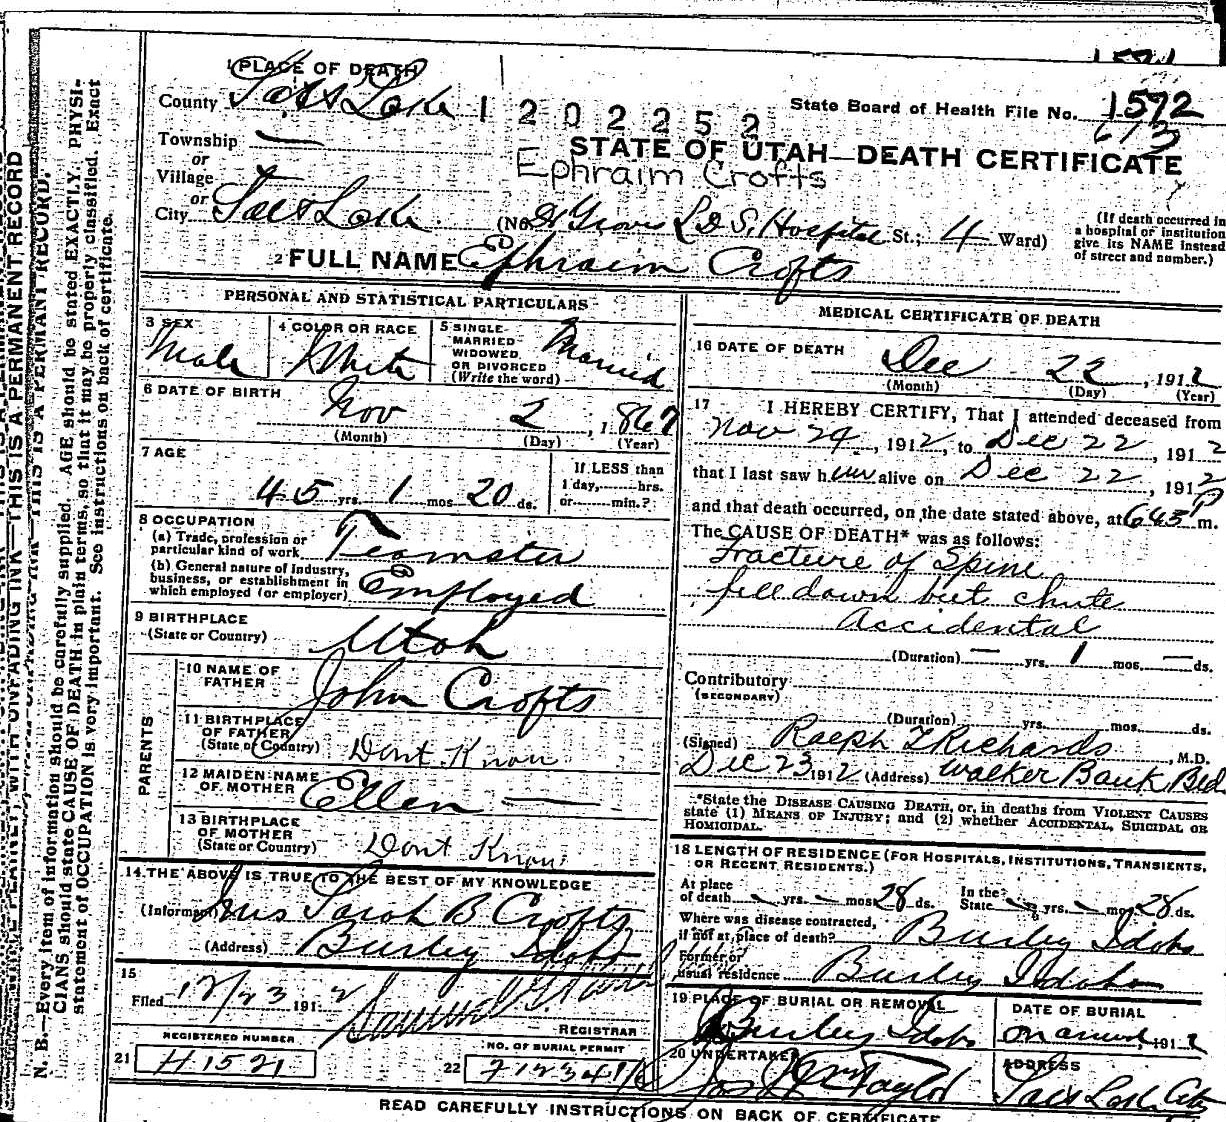 1 PLACE OF DEATH
County Salt Lake 1 2 0 2 2 5 2
State Board of Health File No. 1592
613
Township —
or
Village
or
City Salt Lake
STATE OF UTAH—DEATH CERTIFICATE
Ephraim Crofts
(No. L.D.S. Hospital St.; 4 Ward)
(If death occurred in
a hospital or institution
give its NAME instead
of street and number.)
2 FULL NAME Ephraim Crofts
PERSONAL AND STATISTICAL PARTICULARS
3 SEX
Male
4 COLOR OR RACE
White
5 SINGLE
MARRIED
WIDOWED
OR DIVORCED
(Write the word)
Married
6 DATE OF BIRTH
Nov 2, 1867
(Month) (Day) (Year)
7 AGE
45 yrs. 1 mos 20 ds.
If LESS than
1 day, hrs.
or min.?
8 OCCUPATION
(a) Trade, profession or
particular kind of work Teamster
(b) General nature of Industry,
business, or establishment in
which employed (or employer) Employed
9 BIRTHPLACE
(State or Country) Utah
PARENTS
10 NAME OF
FATHER John Crofts
11 BIRTHPLACE
OF FATHER
(State or Country) Dont Know
12 MAIDEN NAME
OF MOTHER Ellen —
13 BIRTHPLACE
OF MOTHER
(State or Country) Dont Know
14 THE ABOVE IS TRUE TO THE BEST OF MY KNOWLEDGE
(Informant) Mrs Sarah B Crofts
(Address) Burley Idaho
15
Filed 12/23 1912
REGISTRAR
REGISTERED NUMBER
21 H1521
NO. OF BURIAL PERMIT
22
MEDICAL CERTIFICATE OF DEATH
16 DATE OF DEATH
Dec 22, 1912
(Month) (Day) (Year)
17 I HEREBY CERTIFY, That I attended deceased from
Nov 24, 1912, to Dec 22, 1912
that I last saw him alive on Dec 22, 1912
and that death occurred, on the date stated above, at 643 P m.
The CAUSE OF DEATH* was as follows:
Fracture of Spine
fell down beet chute
Accidental
(Duration) — yrs. 1 mos. — ds.
Contributory
(SECONDARY)
(Duration) yrs. mos. ds.
(Signed) Ralph T Richards, M.D.
Dec 23 1912 (Address) Walker Bank Bld.
*State the DISEASE CAUSING DEATH, or, in deaths from VIOLENT CAUSES
state (1) MEANS OF INJURY; and (2) whether ACCIDENTAL, SUICIDAL OR
HOMICIDAL.
18 LENGTH OF RESIDENCE (FOR HOSPITALS, INSTITUTIONS, TRANSIENTS,
OR RECENT RESIDENTS.)
At place
of death — yrs. — mos 28 ds.
In the
State — yrs. — mo 28 ds.
Where was disease contracted,
if not at place of death? Burley Idaho
Former or
usual residence Burley Idaho
19 PLACE OF BURIAL OR REMOVAL
Burley Idaho
DATE OF BURIAL
On arrival, 1912
20 UNDERTAKER
Taylor
ADDRESS
Salt Lake City
READ CAREFULLY INSTRUCTIONS ON BACK OF CERTIFICATE
N. B.—Every item of information should be carefully supplied. AGE should be stated EXACTLY. PHYSI-
CIANS should state CAUSE OF DEATH in plain terms, so that it may be properly classified. Exact
statement of OCCUPATION is very important. See instructions on back of certificate.
WITH UNFADING INK—THIS IS A PERMANENT RECORD